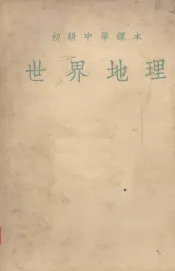 初級中學課本
世界地理